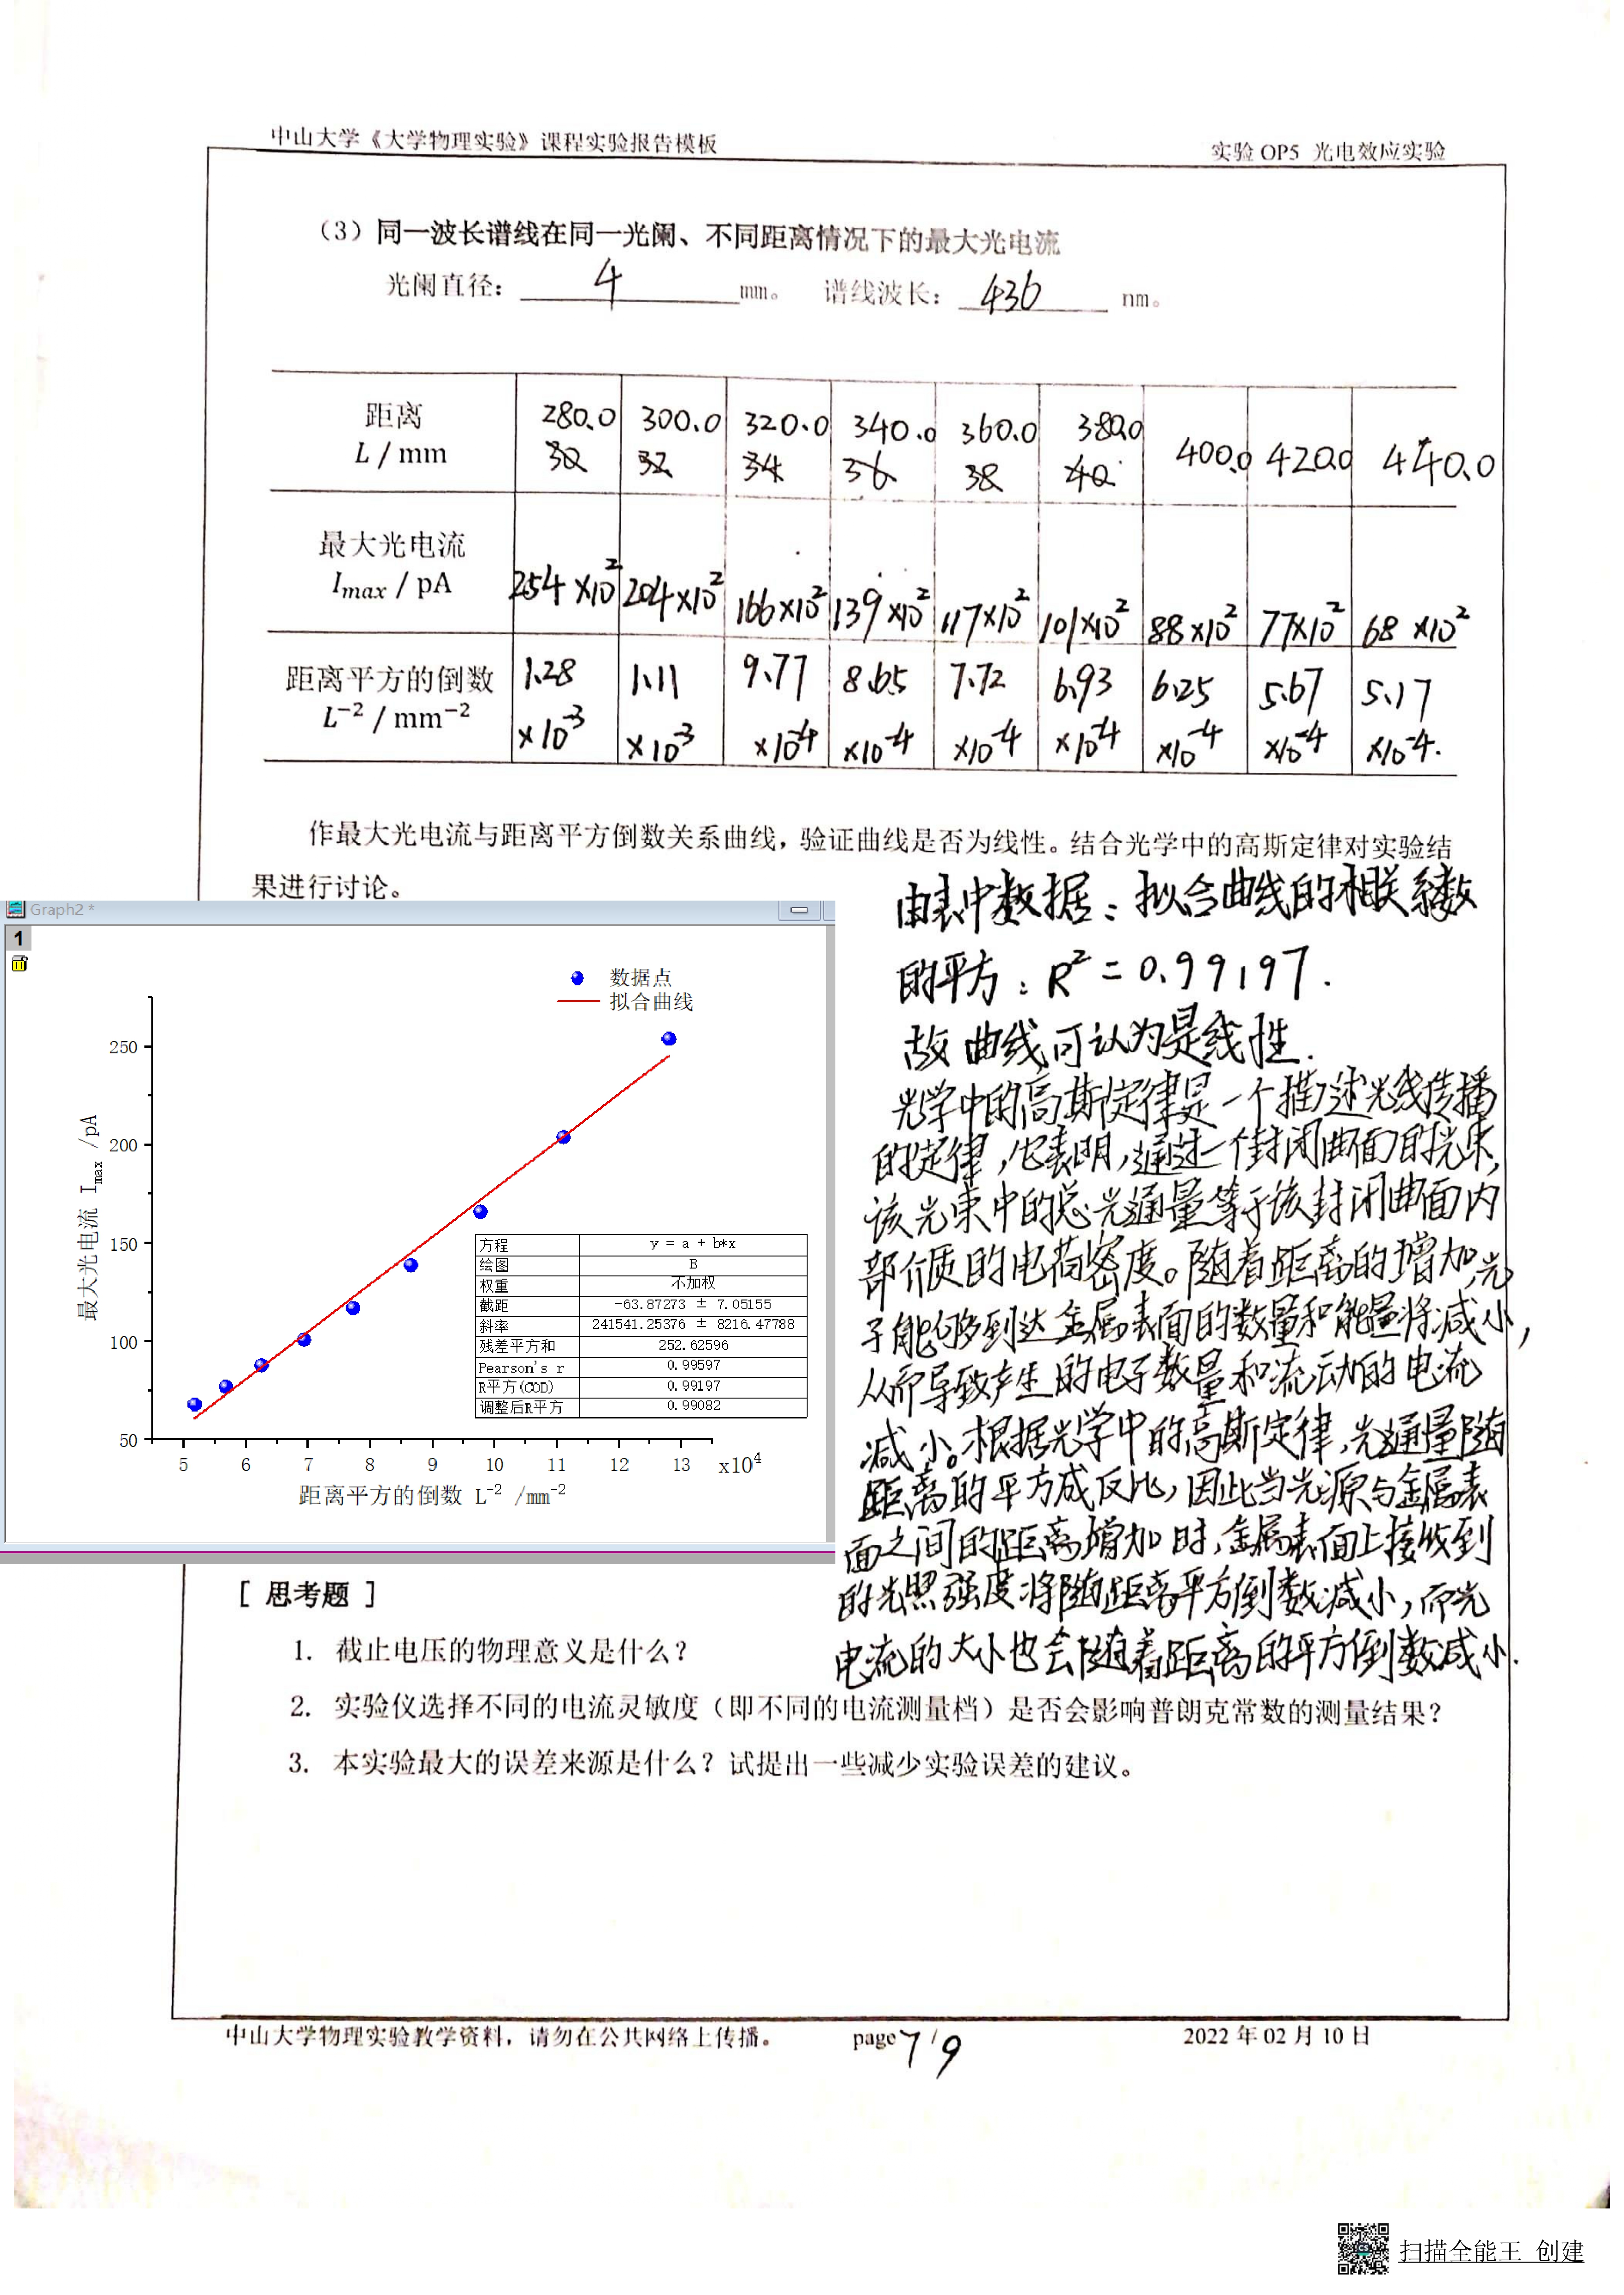 中山大学《大学物理实验》课程实验报告模板
实验 OP5 光电效应实验
（3）同一波长谱线在同一光阑、不同距离情况下的最大光电流
光阑直径： 4 mm。 谱线波长： 436 nm。
距离 L / mm 280.0 300.0 320.0 340.0 360.0 380.0 400.0 420.0 440.0
30 32 34 36 38 40
最大光电流 Imax / pA 254×10² 204×10² 166×10² 139×10² 117×10² 101×10² 88×10² 77×10² 68×10²
距离平方的倒数 L⁻² / mm⁻² 1.28×10⁻³ 1.11×10⁻³ 9.77×10⁻⁴ 8.65×10⁻⁴ 7.72×10⁻⁴ 6.93×10⁻⁴ 6.25×10⁻⁴ 5.67×10⁻⁴ 5.17×10⁻⁴.
作最大光电流与距离平方倒数关系曲线，验证曲线是否为线性。结合光学中的高斯定律对实验结
果进行讨论。
Graph2 *
1
数据点
拟合曲线
最大光电流 Imax /pA
250
200
150
100
50
5 6 7 8 9 10 11 12 13 x10⁴
距离平方的倒数 L⁻² /mm⁻²
方程 y = a + b*x
绘图 B
权重 不加权
截距 -63.87273 ± 7.05155
斜率 241541.25376 ± 8216.47788
残差平方和 252.62596
Pearson's r 0.99597
R平方(COD) 0.99197
调整后R平方 0.99082
由表中数据：拟合曲线的相关系数
的平方：R²=0.99197.
故曲线可认为是线性.
光学中的高斯定律是一个描述光线传播
的定律，它表明，通过一个封闭曲面的光束，
该光束中的总光通量等于该封闭曲面内
部介质的电荷密度。随着距离的增加，光
子能够到达金属表面的数量和能量将减小，
从而导致产生的电子数量和流动的电流
减小。根据光学中的高斯定律，光通量随
距离的平方成反比，因此当光源与金属表
面之间的距离增加时，金属表面上接收到
的光照强度将随距离平方倒数减小，而光
电流的大小也会随着距离的平方倒数减小.
[ 思考题 ]
1. 截止电压的物理意义是什么？
2. 实验仪选择不同的电流灵敏度（即不同的电流测量档）是否会影响普朗克常数的测量结果？
3. 本实验最大的误差来源是什么？试提出一些减少实验误差的建议。
中山大学物理实验教学资料，请勿在公共网络上传播。
page 7/9
2022 年 02 月 10 日
扫描全能王 创建